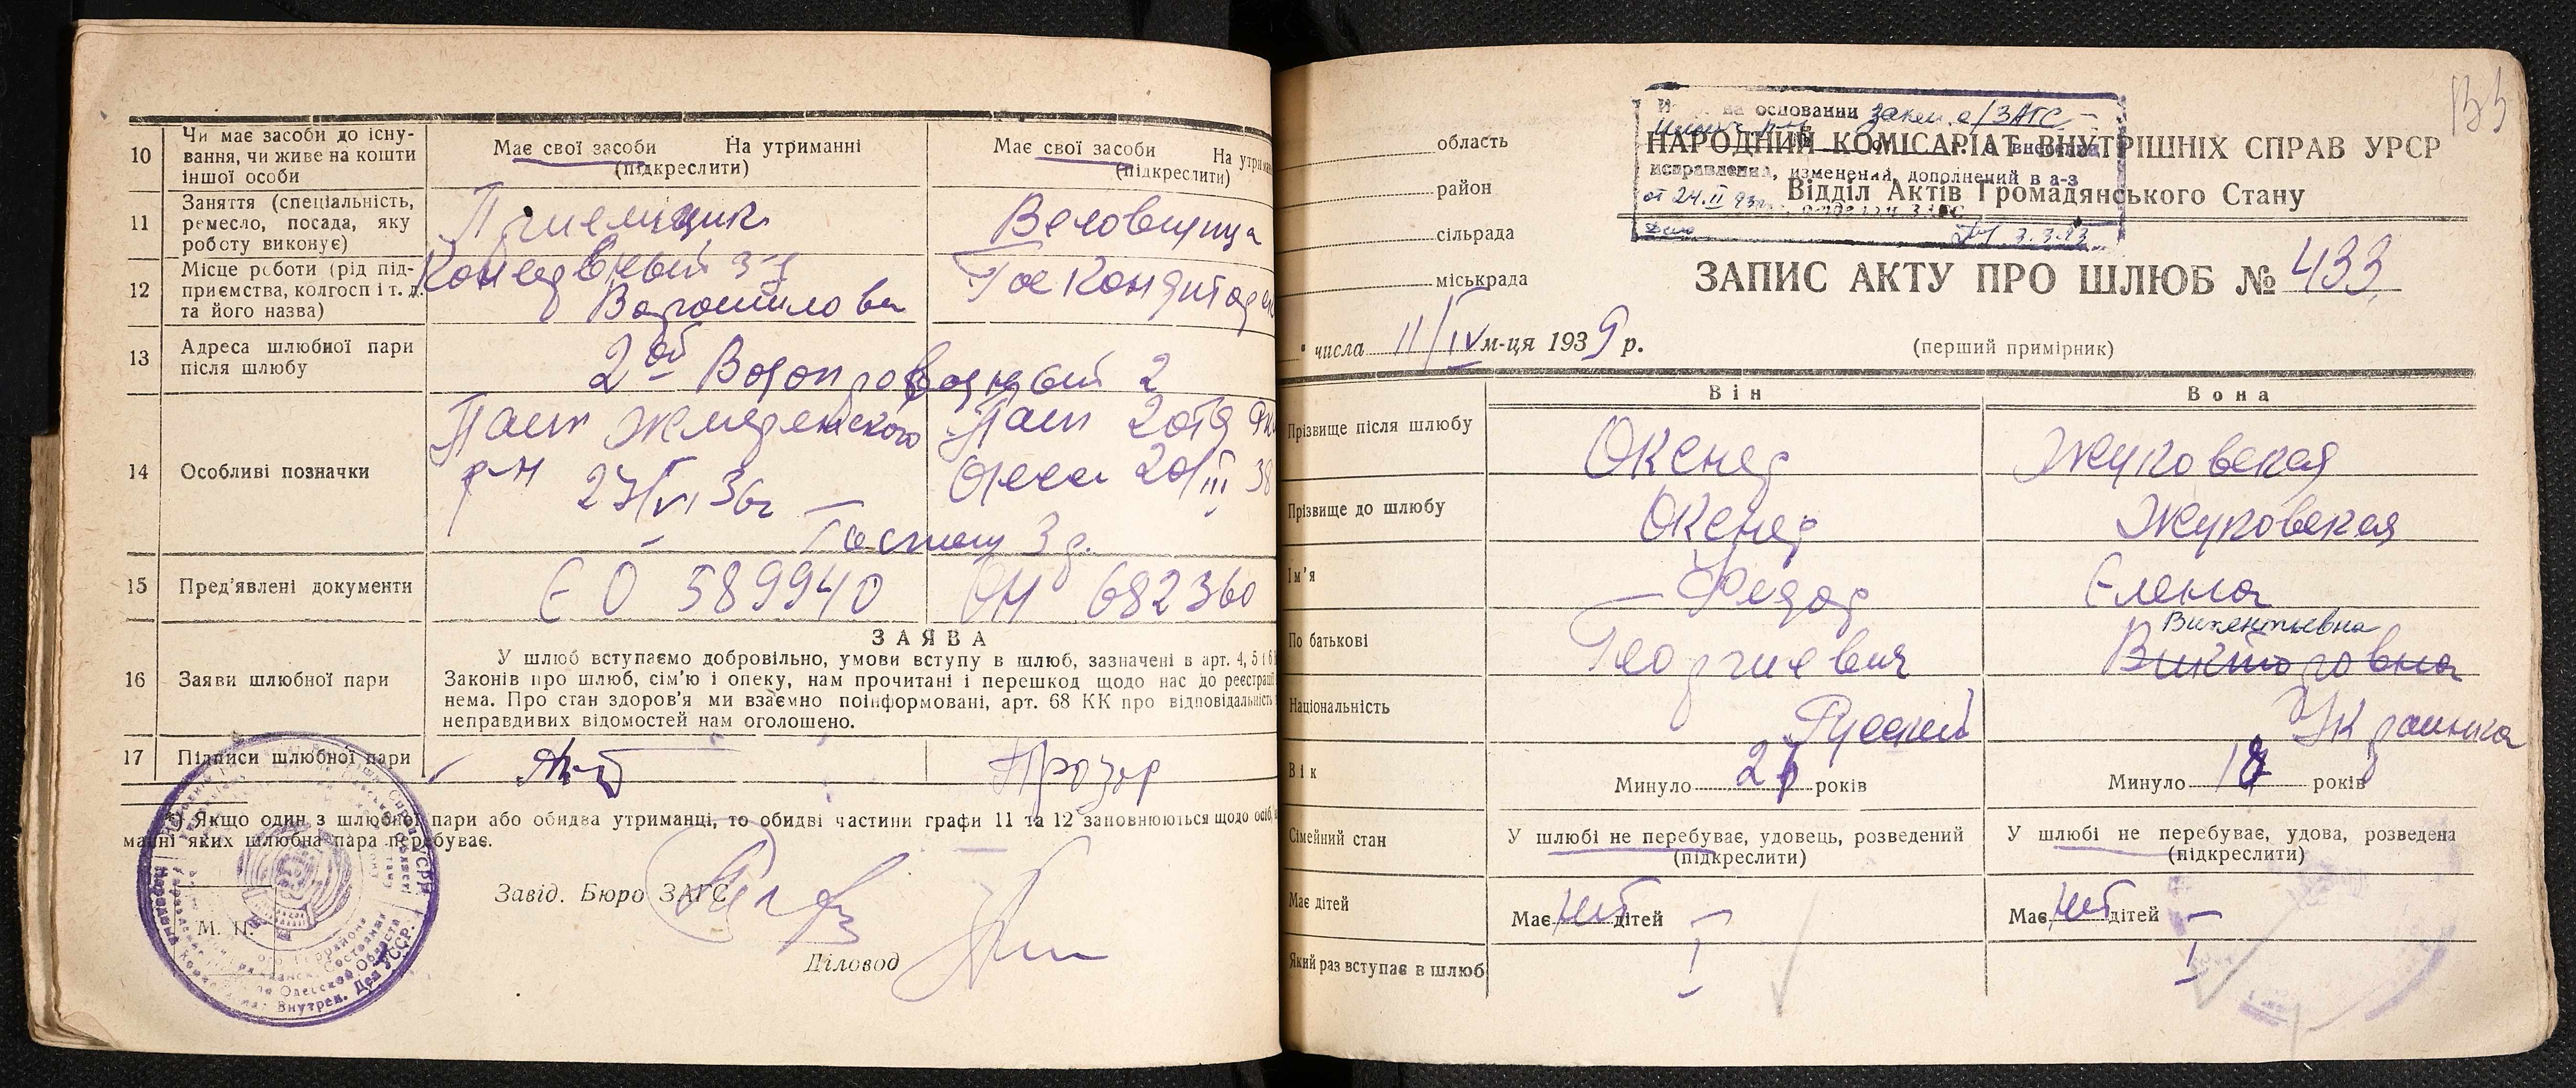 10 Чи має засоби до існу-
вання, чи живе на кошти
іншої особи
Має свої засоби На утриманні
(підкреслити)
Має свої засоби На утрима
(підкреслити)
11 Заняття (спеціальність,
ремесло, посада, яку
роботу виконує)
Приемщик
Весовщица
12 Місце роботи (рід під-
приємства, колгосп і т. д.
та його назва)
Консервный з-д
Ворошилова
13 Адреса шлюбної пари
після шлюбу
2ой Водопроводный 2
14 Особливі позначки
Пасп
р-н 27/VI 36г
Пасп 20тд
Одесса 20/III 38
15 Пред'явлені документи
ЄО 589940
ОН 682360
ЗАЯВА
16 Заяви шлюбної пари
У шлюб вступаємо добровільно, умови вступу в шлюб, зазначені в арт. 4, 5 і 6
Законів про шлюб, сім'ю і опеку, нам прочитані і перешкод щодо нас до реєстрації
нема. Про стан здоров'я ми взаємно поінформовані, арт. 68 КК про відповідальність
неправдивих відомостей нам оголошено.
17 Підписи шлюбної пари
*) Якщо один з шлюбної пари або обидва утриманці, то обидві частини графи 11 та 12 заповнюються щодо осіб,
манні яких шлюбна пара перебуває.
М. П.
Завід. Бюро ЗАГС
Діловод
133
на основании закл. о/ЗАГС
исправления, изменения, дополнений в а-з
3.3.83
НАРОДНИЙ КОМІСАРІАТ ВНУТРІШНІХ СПРАВ УРСР
Відділ Актів Громадянського Стану
область
район
сільрада
міськрада
ЗАПИС АКТУ ПРО ШЛЮБ № 433
числа 11/IV м-ця 1939 р.
(перший примірник)
Він Вона
Прізвище після шлюбу
Окснер
Жуковская
Прізвище до шлюбу
Окснер
Жуковская
Ім'я
Федор
Елена
По батькові
Георгиевич
Викентьевна
Викторовна
Національність
Русский
Украинка
Вік
Минуло років
Минуло 18 років
Сімейний стан
У шлюбі не перебуває, удовець, розведений
(підкреслити)
У шлюбі не перебуває, удова, розведена
(підкреслити)
Має дітей
Має нет дітей
Має нет дітей
Який раз вступає в шлюб
I
I